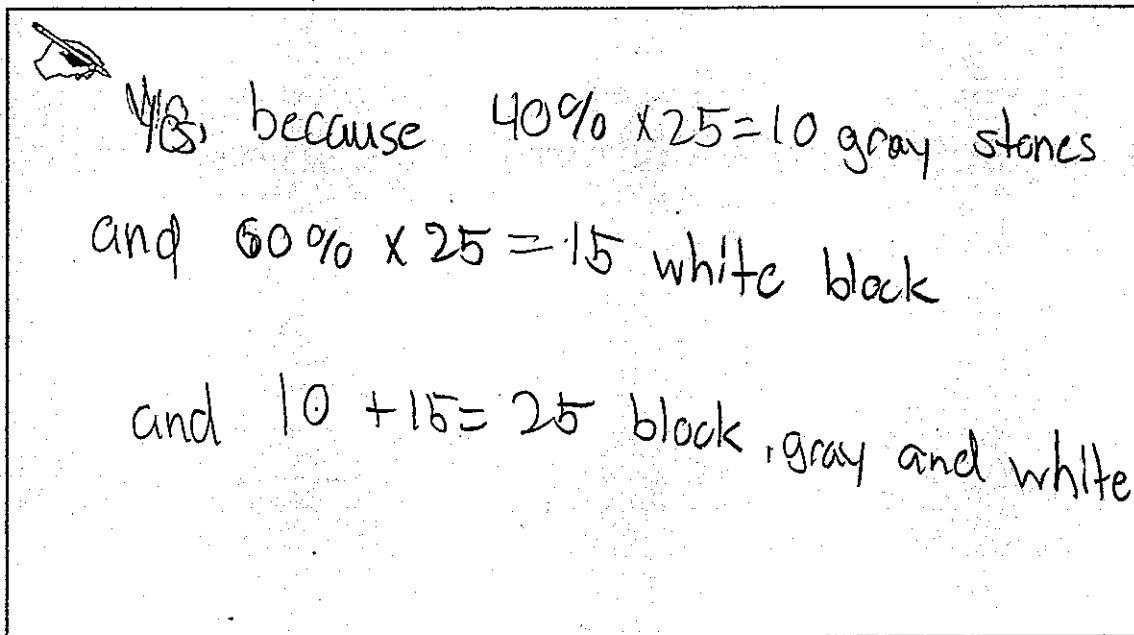 Yes, because 40% x 25 = 10 gray stones
and 60% x 25 = 15 white block
and 10 + 15 = 25 block, gray and white